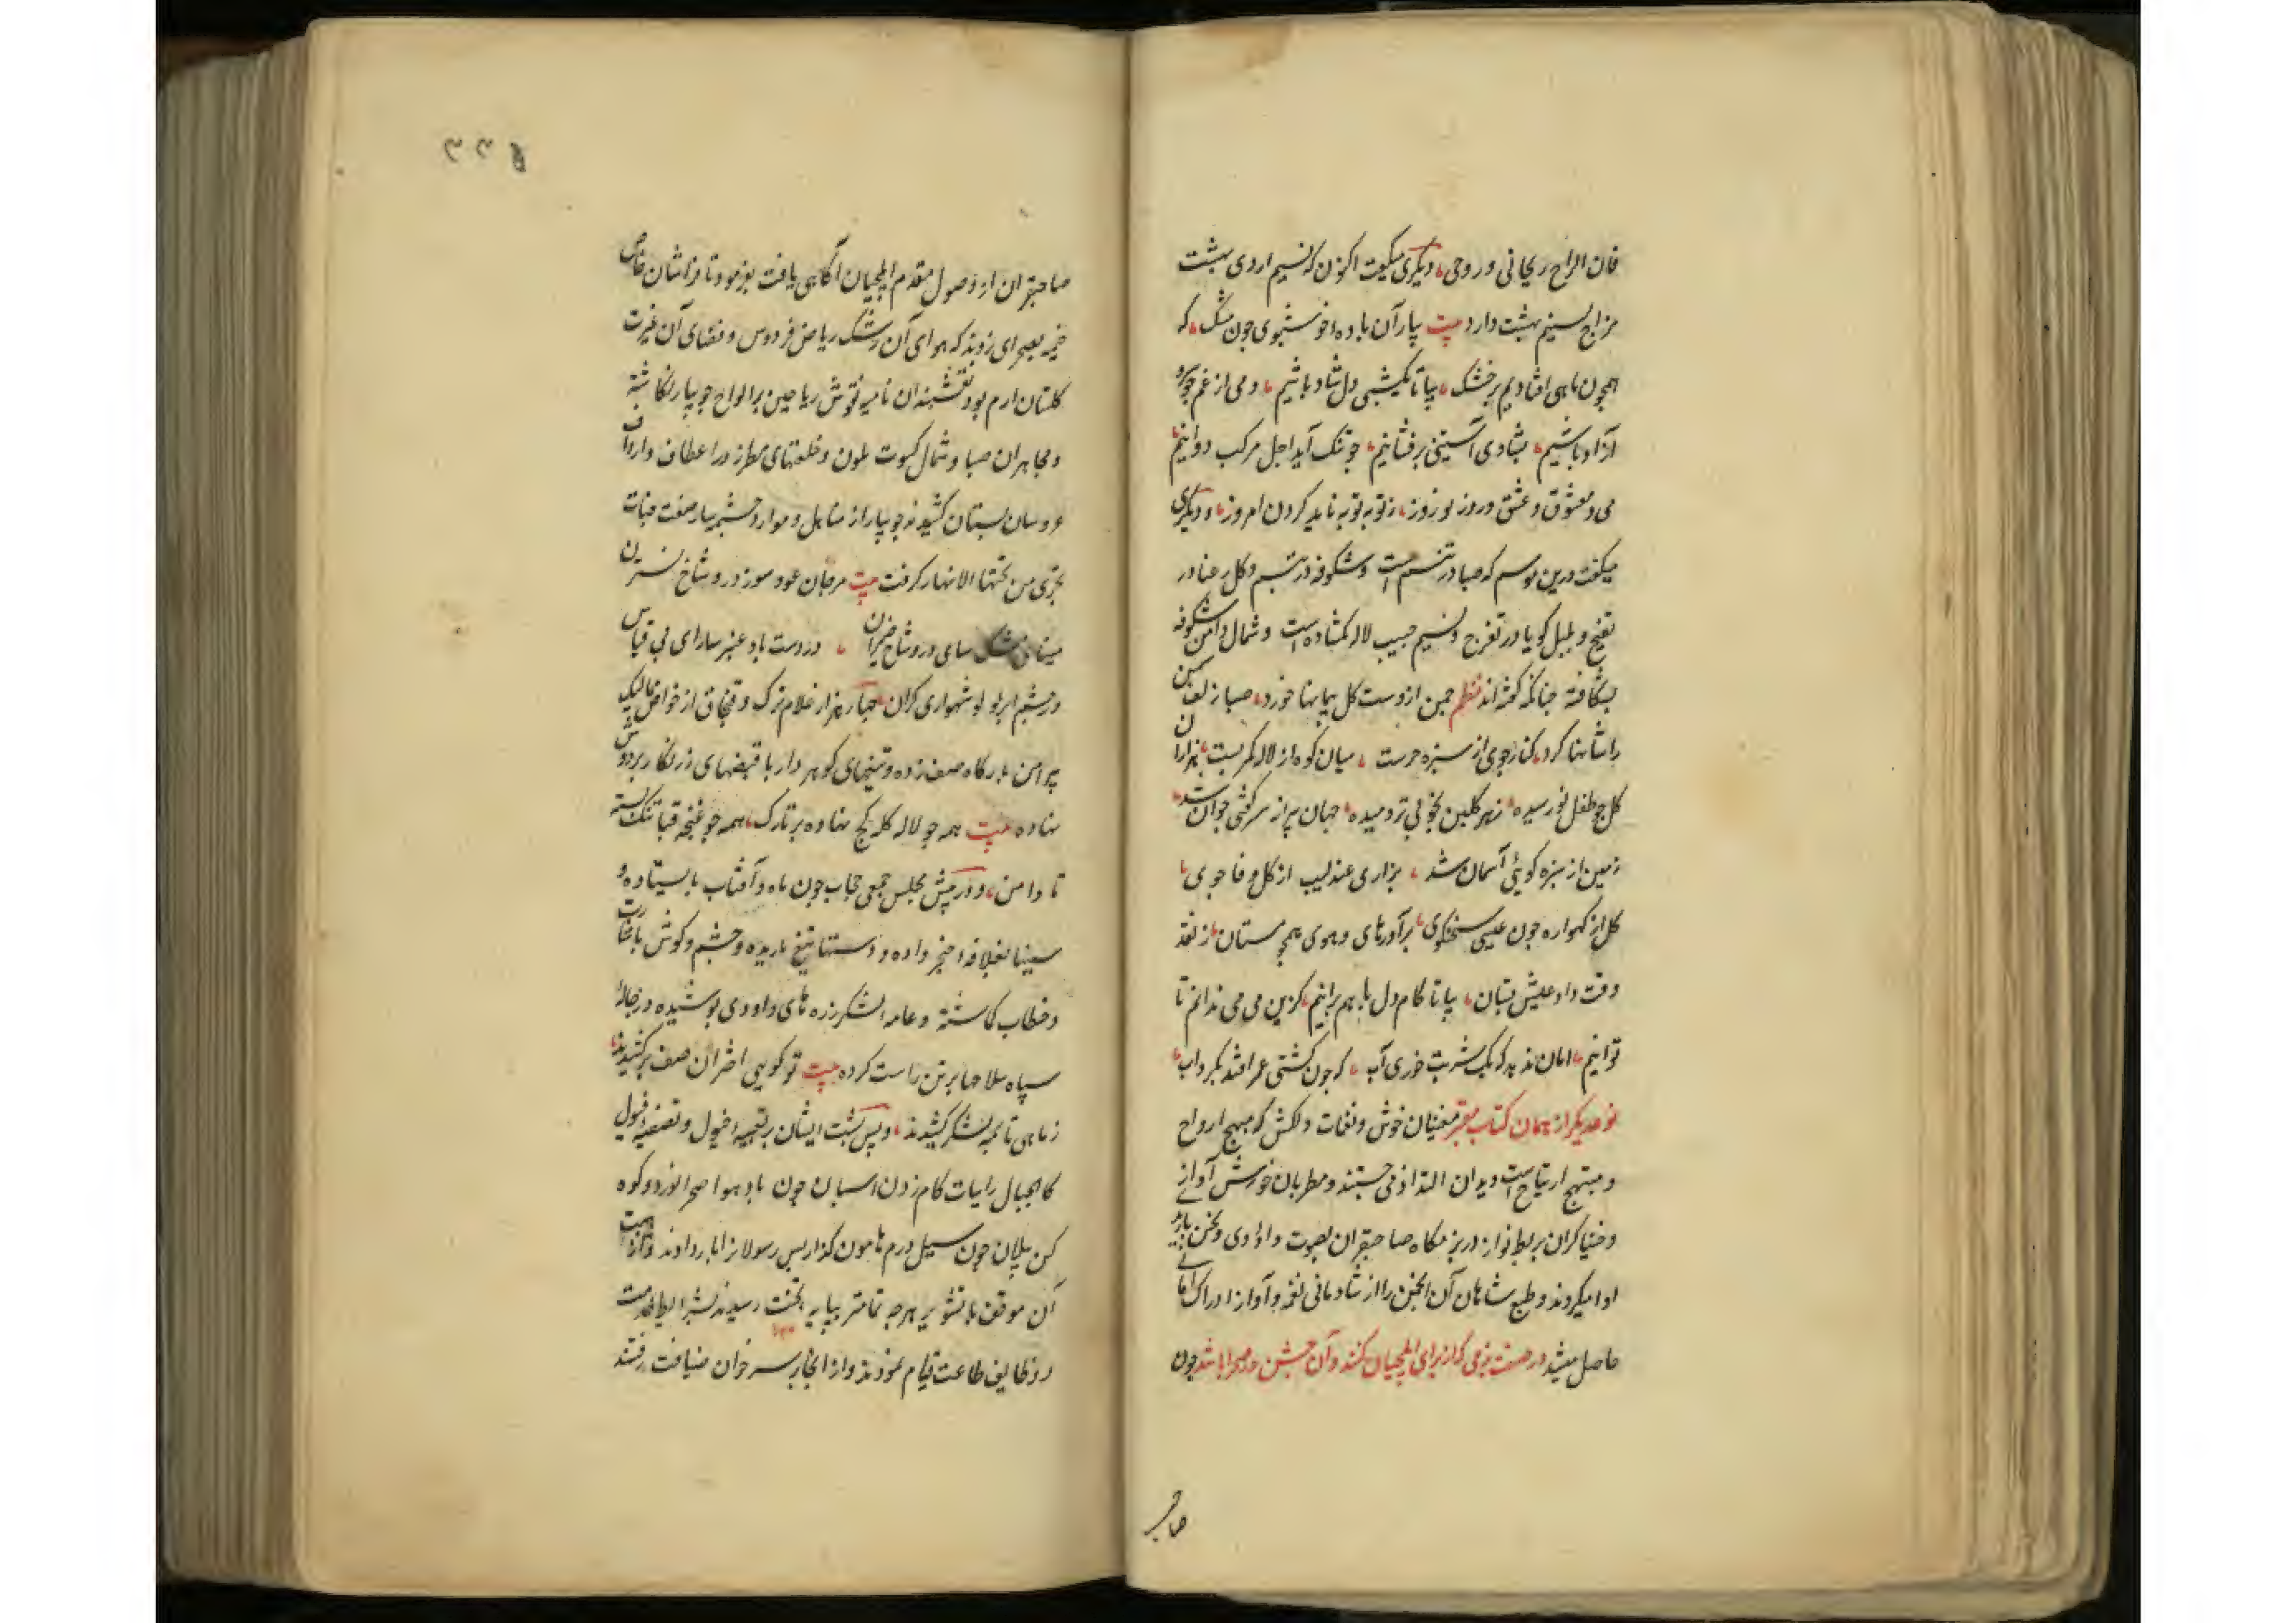 فان الراح ریحانی و روحی دیگری میگفت اکنون که نسیم اردی بهشت
مزاج نسیم بهشت دارد بیت بیار آن باده خوشبوی چون مشک که
همچون ماهی افتادیم بر خشک بیا تا یکشبی دل شاد باشیم دمی از غم چو سرو
آزاد باشیم بشادی آستینی برفشانیم چو تنگ آید اجل مرکب دوانیم
می و معشوق و عشق و روز نوروز ز توبه توبه باید کردن امروز و دیگری
میگفت درین موسم که صبا در تنسم است و شکوفه در تبسم و گل رعنا در
تفتح و بلبل گویا در تفرج و نسیم جیب لاله گشاده است و شمال دامن شکوفه
بشکافته چنانکه گفته‌اند نظم چمن از دست گل پیمانها خورد صبا زلف سمن
را شانها کرد کنار جوی از سبزه حرست میان کوه از لاله کمر بست هزاران
گل چو طفل نو رسیده ز هر گلبن بخوبی بر دمیده جهان پیر از سر گشتی جوان شد
زمین از سبزه گویی آسمان شد بزاری عندلیب از گل وفا جوی
گل از گهواره چون عیسی سخنگوی برآور های و هوی همچو مستان ز نقد
وقت داد عیش بستان بیا تا کام دل با هم برانیم کزین می می ندانم تا
توانیم امان ندهد که یک شربت خوری آب که چون کشتی عمر افتد بگرداب
نوعدیگر از همان کتاب معتبر مغنیان خوش و نغمات دلکش که مهیج ارواح
و مبتهج ارتیاح است و بدان التذاذ می جستند و مطربان خوش آوازی
و خنیاگران بربط نواز در بزمگاه صاحبقران بصوت داؤدی و لحن باربدی
ادا میکردند و طبع شاهان آن انجمن را از شادمانی نغمه و آواز ادراک امانی
حاصل میشد در صفت بزمی که از برای ایلچیان کنند و آن جشن در صحرا باشد چون
صاحب
۳۳۵
صاحبقران از وصول مقدم ایلچیان آگاهی یافت بفرمود تا فراشان خاص
خیمه بصحرای زدند که هوای آن رشک ریاض فردوس و فضای آن غیرت
گلستان ارم بود نقشبندان نامیه نقوش ریاحین بر الواح جویبار نگاشته
و مجاهزان صبا و شمال کسوت ملون و خلعتهای مطرز در اعطاف و ارداف
عروسان بستان کشیدند جویبار از مناهل و موارد چشمه سار صفت جنات
تجری من تحتها الانهار گرفت بیت مرجان عود سوز در و شاخ نسترن
مینای مشک سای در و شاخ خیزران در دست باد عنبر سارای بی قیاس
در چشم ابر لولو شهواری کران چهار هزار غلام ترک و قبچاق از خواص ممالیک
پیرامن بارگاه صف زده و تیغهای گوهردار با قبضهای زرنگار بر دوش
نهاده بیت همه چو لاله کله کج نهاده بر تارک همه چو غنچه قبا تنگ بسته
تا دامن و در پیش مجلس جمعی حجاب چون ماه و آفتاب بایستاده و
سینها بغلافه خنجر داده و دستها بتیغ یازیده و چشم و گوش باشارت
و خطاب گماشته و عامه لشکر زره های داودی پوشیده و رجاله
سپاه سلاحها بر تن راست کرده بیت تو گویی اختران صف برکشیدند
ز ماهی تا بمه لشکر کشیدند و پس پشت ایشان بتعبیه خیول و تصفیه فیول
کالجبال رایات کام زدن اسبان چون باد هوا صحرا نورد و کوه
کن پیلان چون سیل درم هامون گذار پس رسولانرا بار دادند و از مهابت
آن موقف با تشویر هرچه تمامتر بپایه تخت رسیدند بشرایط خدمت
و وظایف طاعت قیام نمودند و از آنجا بر سر خوان ضیافت رفتند